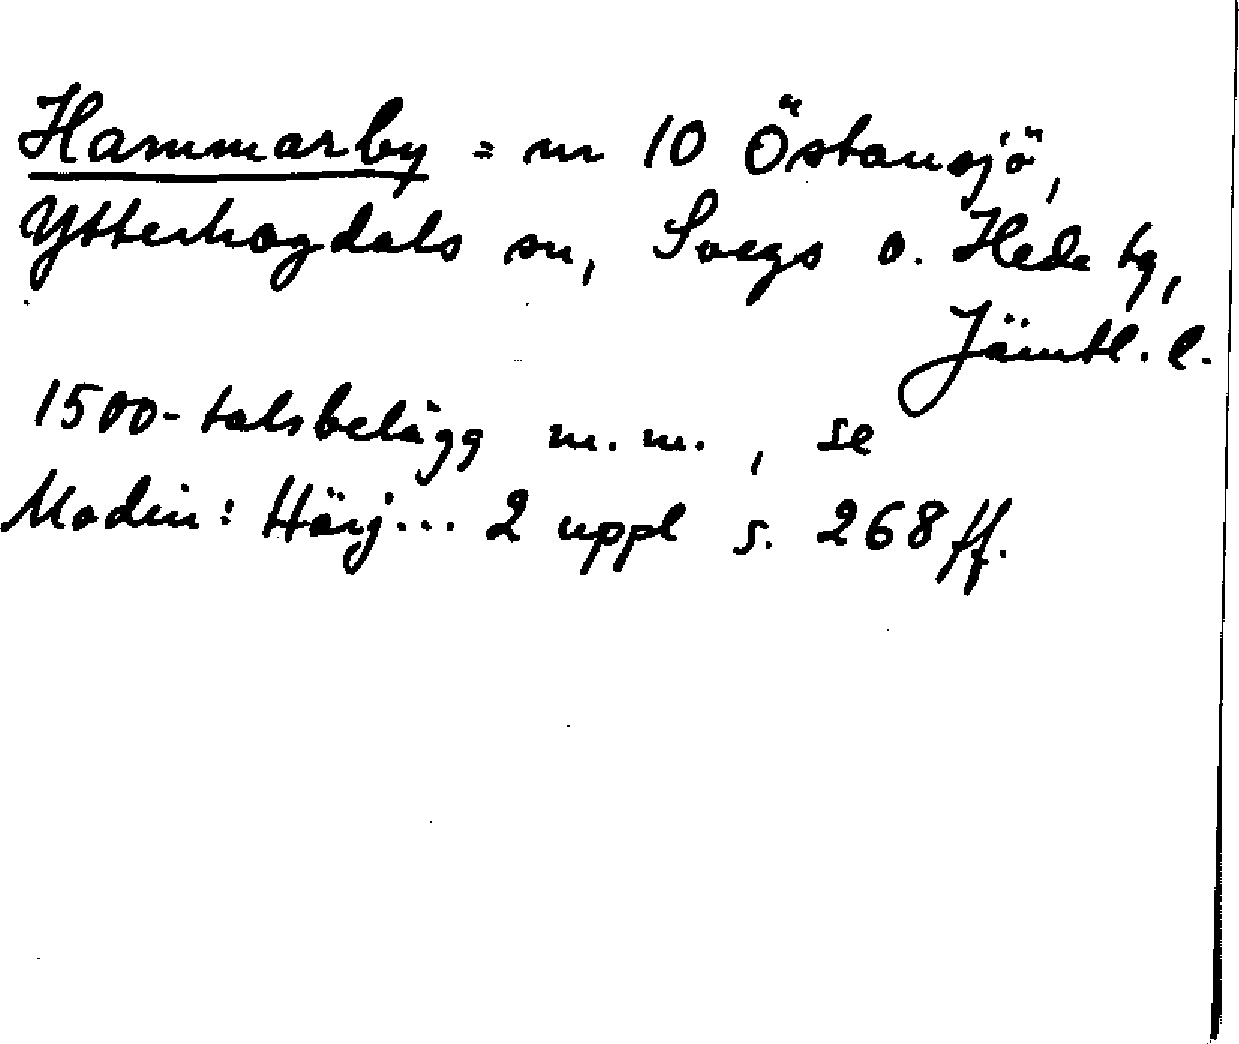 Hammarby = nr 10 Östansjö,
Ytterhogdals sn, Svegs o. Hede tg,
Jämtl. l.
1500-talsbelägg m.m., se
Modin: Härj... 2 uppl s. 268 ff.